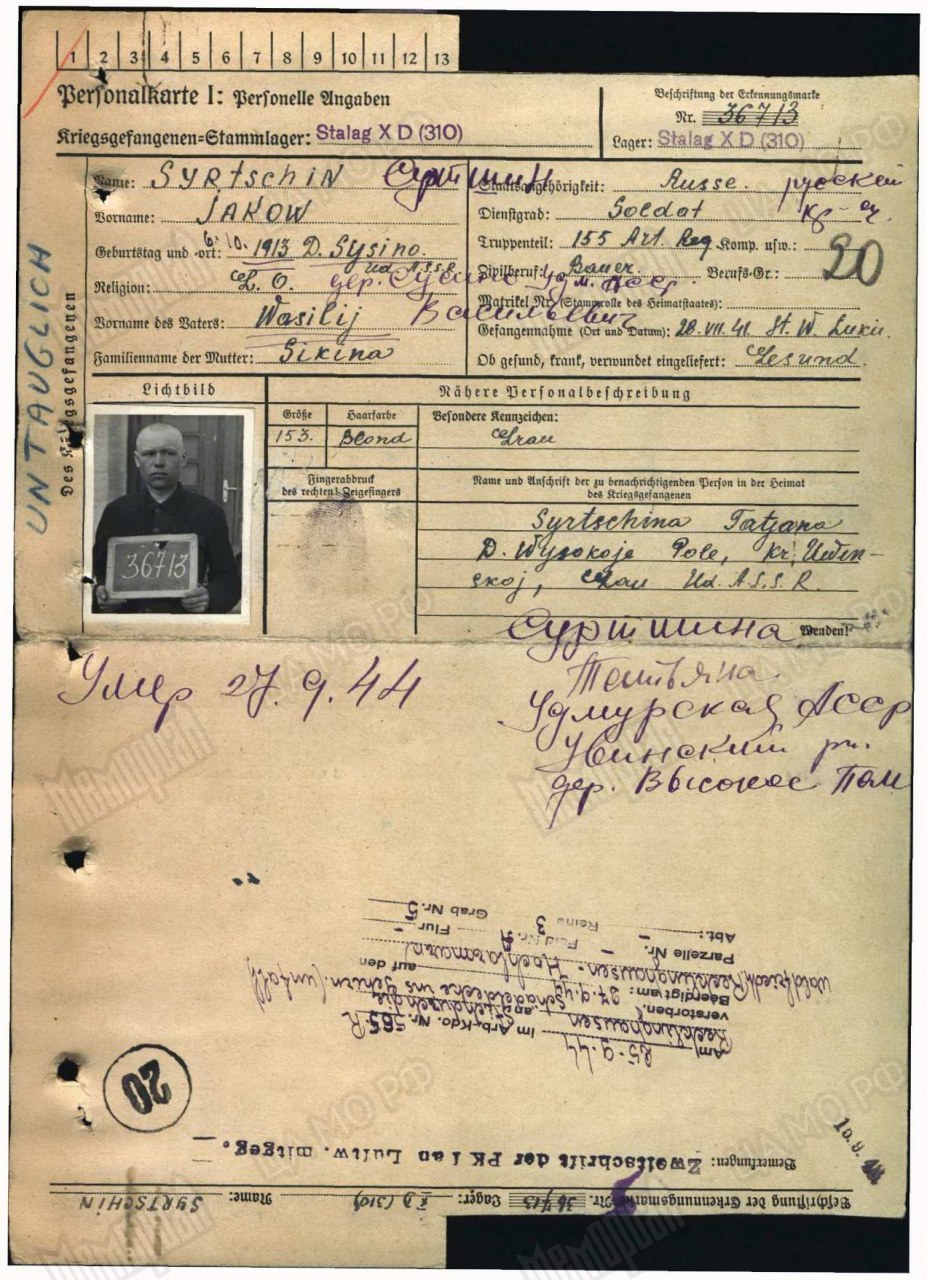 1 2 3 4 5 6 7 8 9 10 11 12 13
Personalkarte I: Personelle Angaben
Kriegsgefangenen=Stammlager: Stalag X D (310)
Beschriftung der Erkennungsmarke
Nr. 36713
Lager: Stalag X D (310)
UNTAUGLICH
Des Kriegsgefangenen
Name: SYRTSCHIN Сурттин
Vorname: JAKOW
Geburtstag und -ort: 6.10. 1913 D. Sysino.
Ud. A.S.S.R.
Religion: G. O. дер. Сусино Удм. АССР.
Vorname des Vaters: Wasilij Васильевич
Familienname der Mutter: Sikina
Staatsangehörigkeit: Russe. русский
Dienstgrad: Soldat кр-ец
Truppenteil: 155 Art. Reg. Komp. usw.:
Zivilberuf: Bauer. Berufs-Gr.: 20
Matrikel Nr. (Stammrolle des Heimatstaates):
Gefangennahme (Ort und Datum): 28.VII.41 St. W. Lukii.
Ob gesund, krank, verwundet eingeliefert: Gesund.
Lichtbild
36713
Nähere Personalbeschreibung
Größe Haarfarbe Besondere Kennzeichen:
153. Blond Grau
Fingerabdruck
des rechten! Zeigefingers
Name und Anschrift der zu benachrichtigenden Person in der Heimat
des Kriegsgefangenen
Syrtschina Tatjana
D. Wysokoje Pole, Kr.
skoj, Ud. A.S.S.R.
Суртшина
Wenden!
Татьяна
Удмурская АССР
рн.
дер. Высокое Поле
Умер 27.9.44
Am 25.9.44 im Arb.-Kdo. Nr. 565 R
Recklinghausen an
verstorben.
Beerdigt am: 27.9.44 auf den
Waldfriedh. Recklinghausen-Hochlarmark
Parzelle Nr. – Feld Nr. A Flur –
Abt.: – Reihe 3 Grab Nr. 5
20
10.9.
Bemerkungen: Zweitschrift der PK I an Luftw. mitgeg.
Beschriftung der Erkennungsmarke Nr. 36713 Lager: X D (310) Name: SYRTSCHIN
Мемориал
ЦАМО РФ